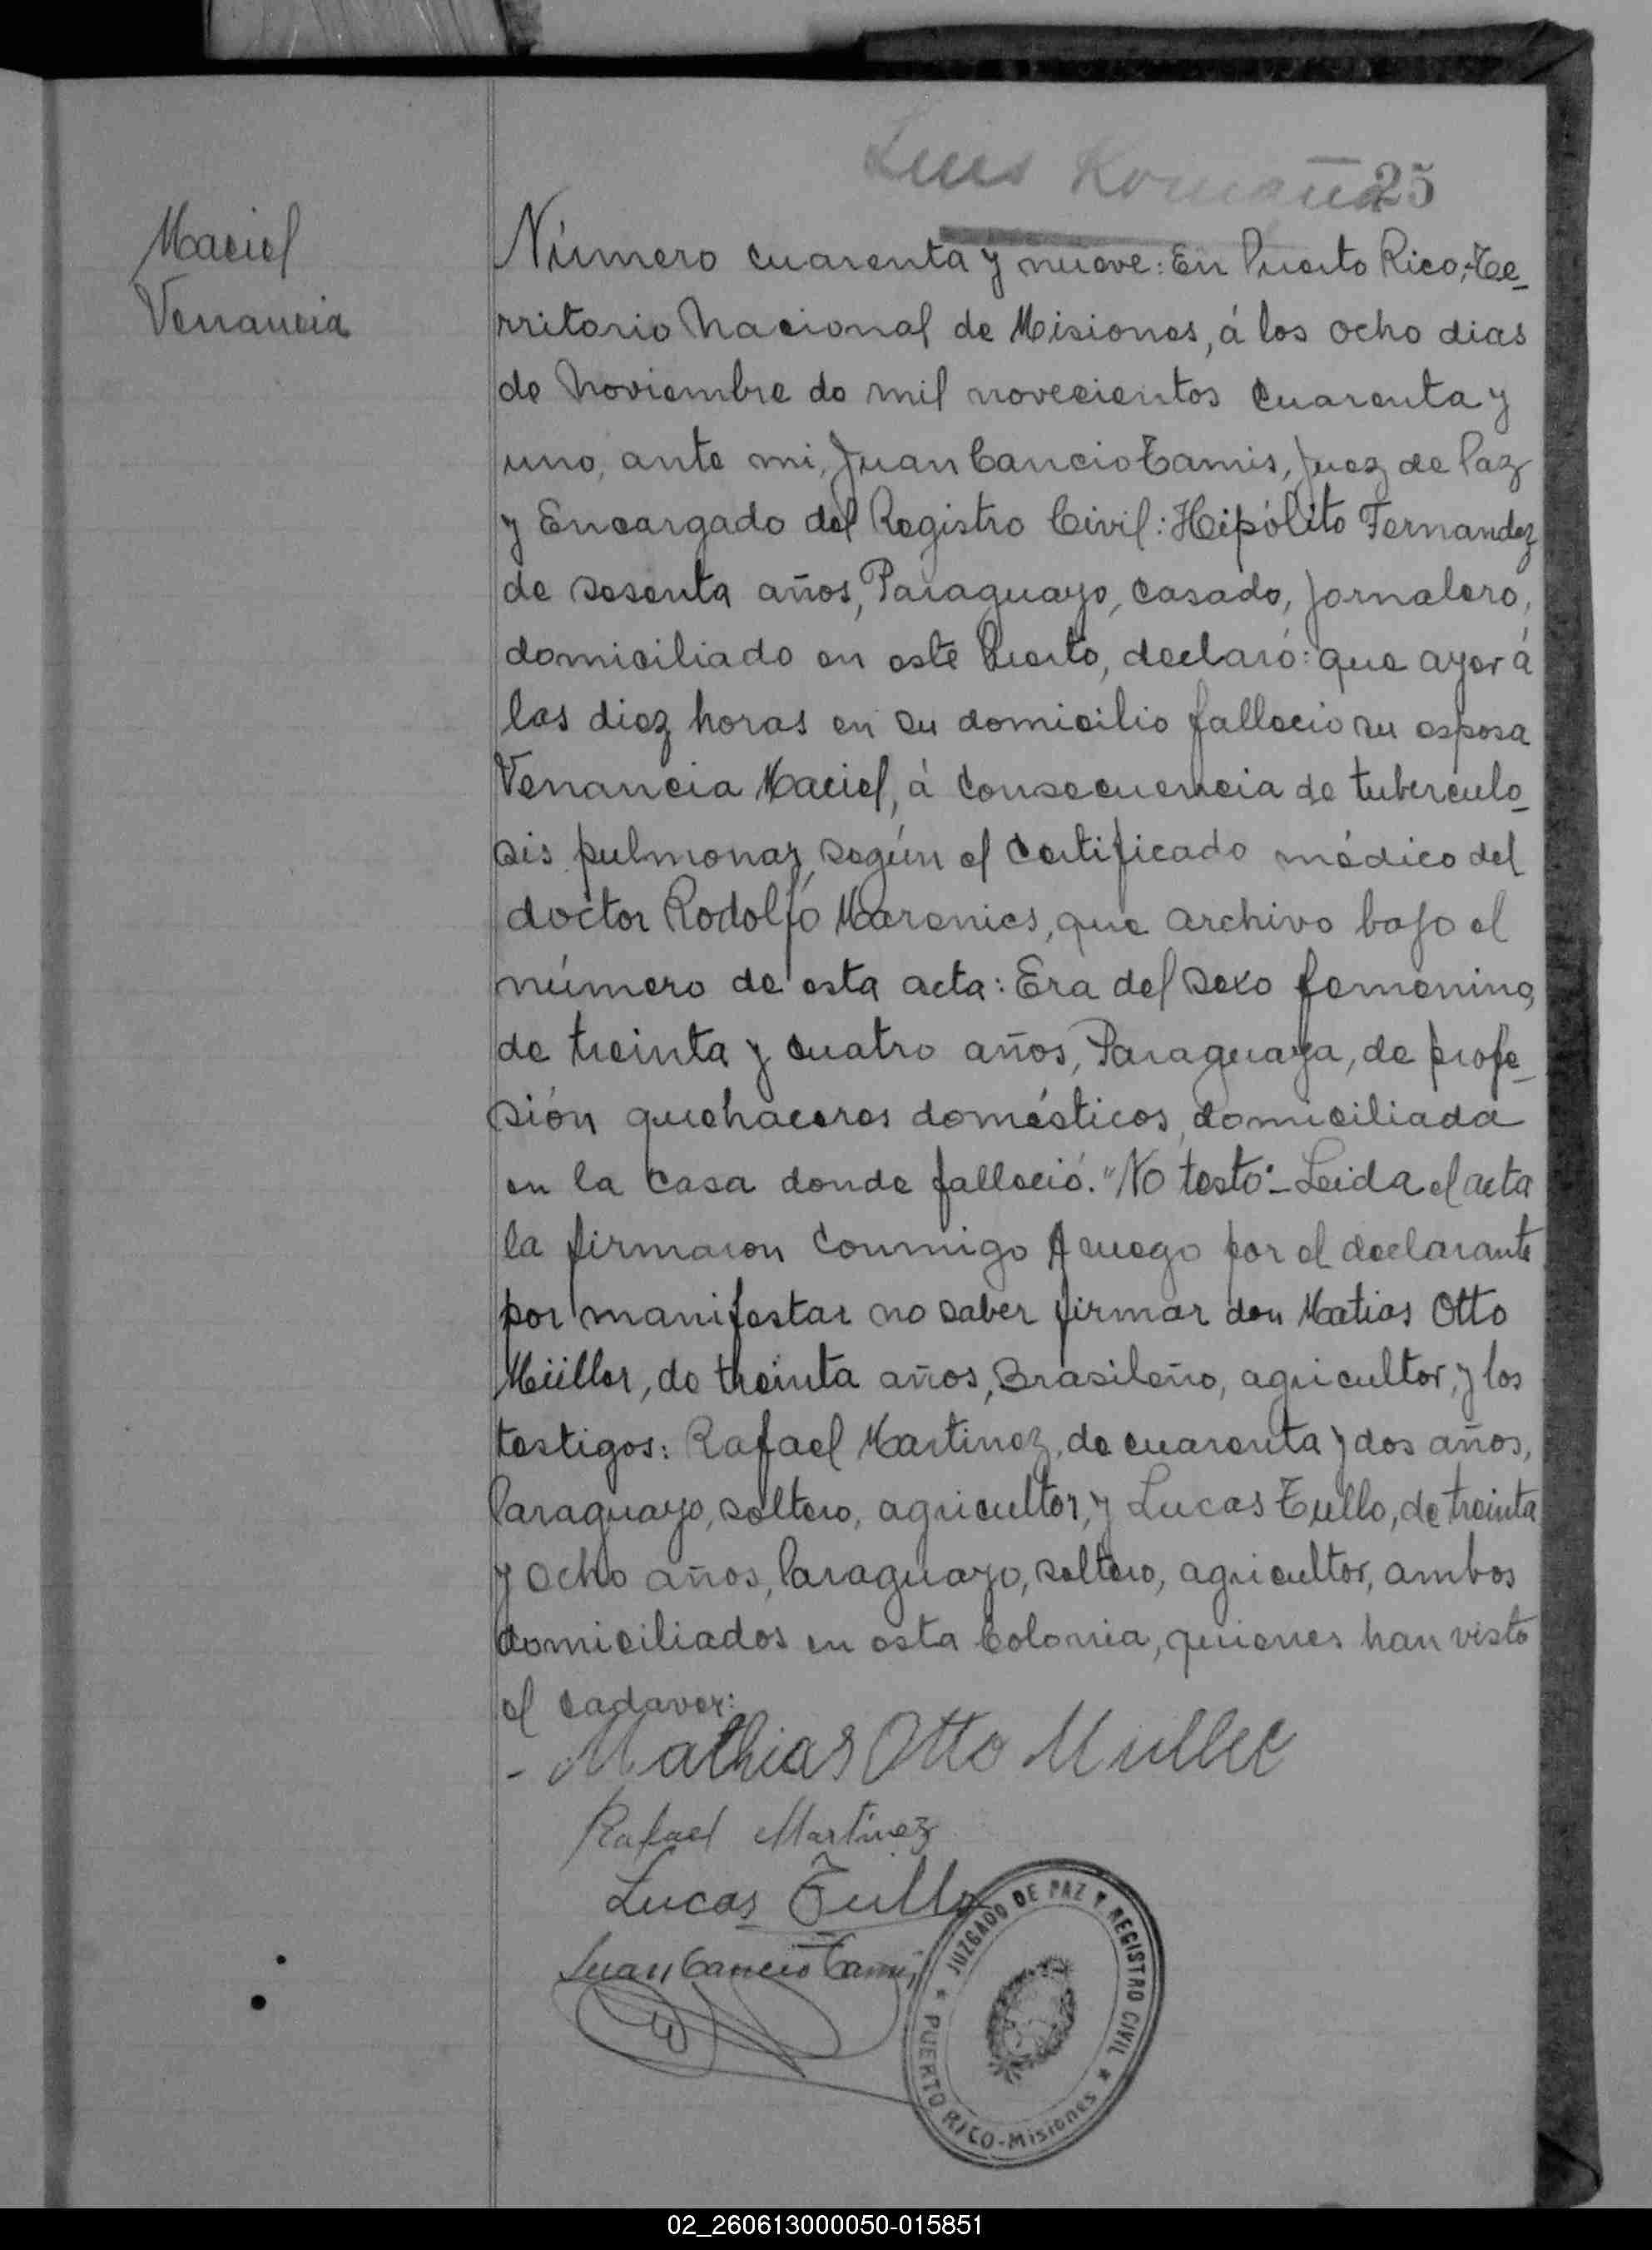 Luis Romaña 25
Maciel
Venancia
Número cuarenta y nueve: En Puerto Rico, Te-
rritorio Nacional de Misiones, á los ocho dias
de Noviembre de mil novecientos cuarenta y
uno, ante mi, Juan Cancio Tamis, Juez de Paz
y Encargado del Registro Civil: Hipólito Fernandez
de sesenta años, Paraguayo, casado, jornalero,
domiciliado en este Puerto, declaró: que ayer á
las diez horas en su domicilio falleció su esposa
Venancia Maciel, á consecuencia de tuberculo-
sis pulmonar, según el certificado médico del
doctor Rodolfo Marenics, que archivo bajo el
número de esta acta: Era del sexo femenino,
de treinta y cuatro años, Paraguaya, de profe-
sión quehaceres domésticos, domiciliada
en la casa donde falleció. "No testó"- Leida el acta
la firmaron conmigo A ruego por el declarante
por manifestar no saber firmar don Matias Otto
Müller, de treinta años, Brasileño, agricultor, y los
testigos: Rafael Martinez, de cuarenta y dos años,
Paraguayo, soltero, agricultor, y Lucas Tullo, de treinta
y ocho años, Paraguayo, soltero, agricultor, ambos
domiciliados en esta Colonia, quienes han visto
el cadaver:
- Mathias Otto Muller
Rafael Martinez
Lucas Tullo
Juan Cancio Tamis
JUZGADO DE PAZ Y REGISTRO CIVIL
PUERTO RICO-Misiones
02_260613000050-015851